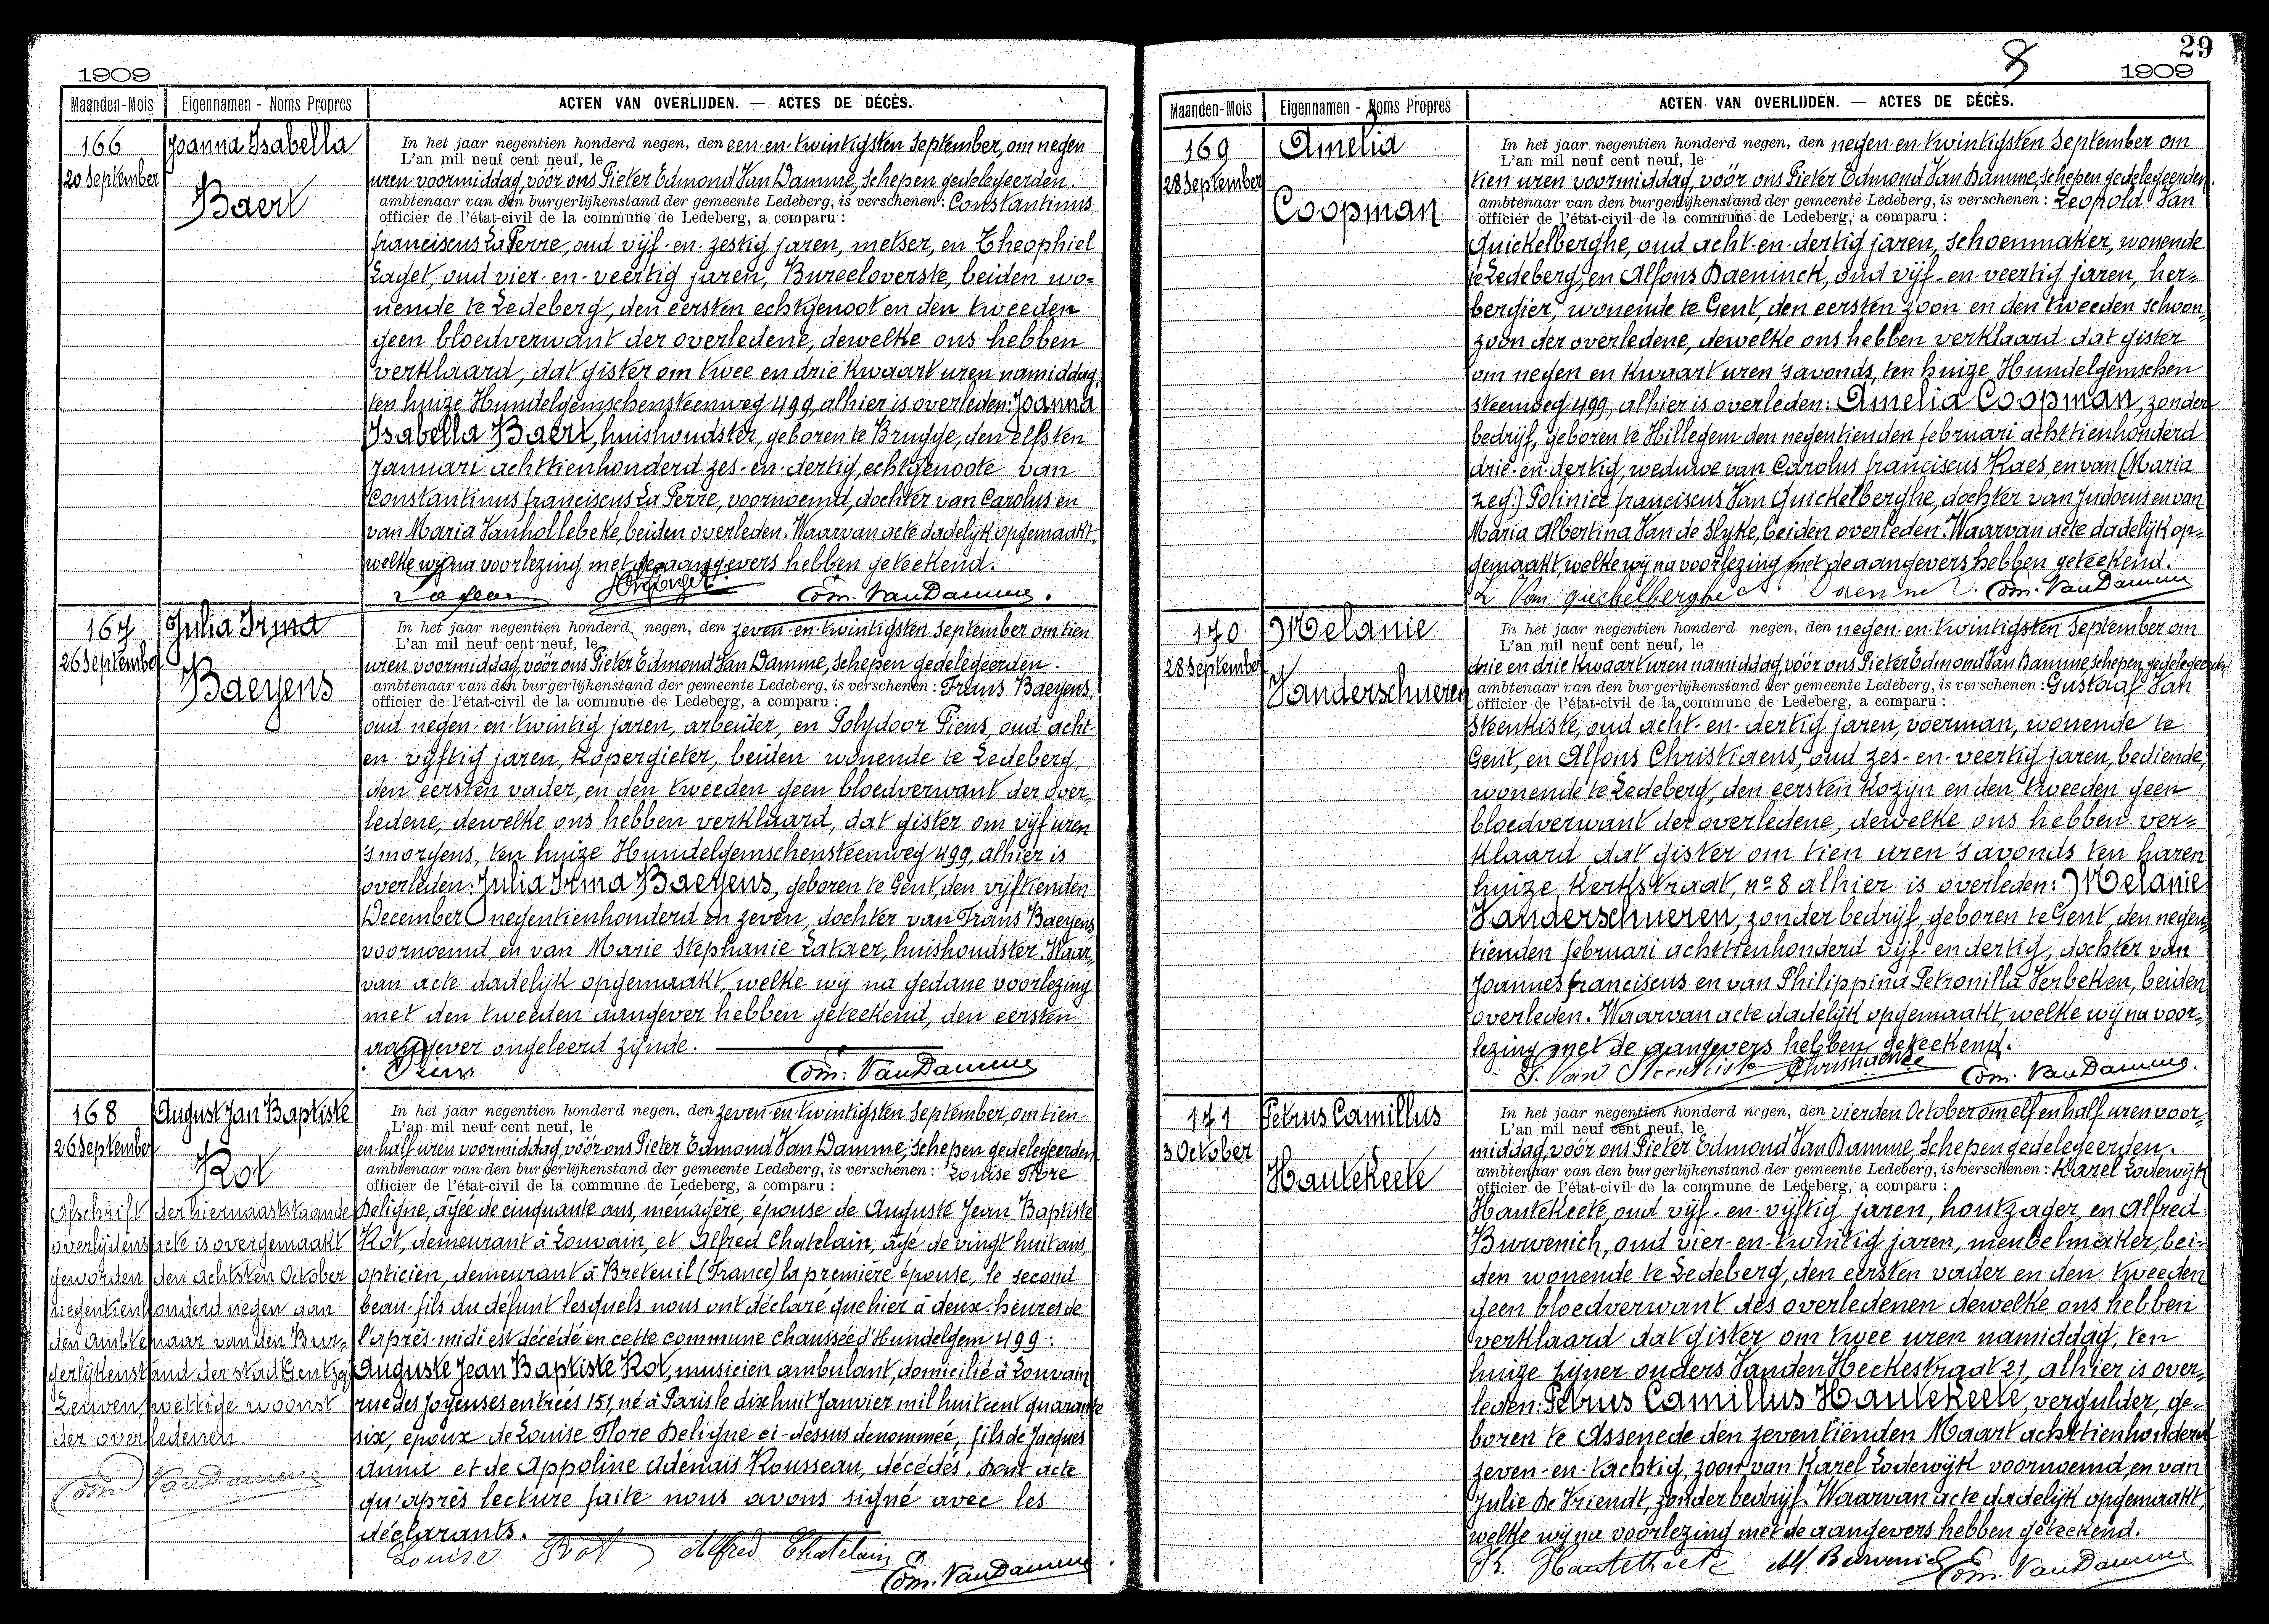 1909
Maanden-Mois Eigennamen - Noms Propres ACTEN VAN OVERLIJDEN. — ACTES DE DÉCÈS.
166
20 September
Joanna Isabella
Baert
In het jaar negentien honderd negen, den een-en-twintigsten September, om negen
L'an mil neuf cent neuf, le
uren voormiddag, vóór ons Pieter Edmond Van Damme, schepen gedelegeerden.
ambtenaar van den burgerlijkenstand der gemeente Ledeberg, is verschenen: Constantinus
officier de l'état-civil de la commune de Ledeberg, a comparu :
franciscus La Perre, oud vijf-en-zestig jaren, metser, en Theophiel
Laget, oud vier-en-veertig jaren, Bureeloverste, beiden wo=
nende te Ledeberg, den eersten echtgenoot en den tweeden
geen bloedverwant der overledene, dewelke ons hebben
verklaard, dat gister om twee en drie kwaart uren namiddag,
ten huize Hundelgemschensteenweg 499, alhier is overleden: Joanna
Isabella Baert, huishoudster, geboren te Brugge, den elfsten
Januari achttienhonderd zes-en-dertig, echtgenoote van
Constantinus franciscus La Perre, voornoemd, dochter van Carolus en
van Maria Vanhollebeke, beiden overleden. Waarvan acte dadelijk opgemaakt,
welke wij na voorlezing met de aangevers hebben geteekend.
Edm. Van Damme.
167
26 September
Julia Irma
Baeyens
In het jaar negentien honderd negen, den zeven-en-twintigsten September om tien
L'an mil neuf cent neuf, le
uren voormiddag, vóór ons Pieter Edmond Van Damme, schepen gedelegeerden.
ambtenaar van den burgerlijkenstand der gemeente Ledeberg, is verschenen : Frans Baeyens,
officier de l'état-civil de la commune de Ledeberg, a comparu :
oud negen-en-twintig jaren, arbeider, en Polydoor Piens, oud acht-
en-vijftig jaren, kopergieter, beiden wonende te Ledeberg,
den eersten vader, en den tweeden geen bloedverwant der over=
ledene, dewelke ons hebben verklaard, dat gister om vijf uren
's morgens, ten huize Hundelgemschensteenweg 499, alhier is
overleden: Julia Irma Baeyens, geboren te Gent, den vijftienden
December negentienhonderd en zeven, dochter van Frans Baeyens
voornoemd, en van Marie Stephanie Lataer, huishoudster. Waar=
van acte dadelijk opgemaakt, welke wij na gedane voorlezing
met den tweeden aangever hebben geteekend, den eersten
aangever ongeleerd zijnde.
Piens Edm. Van Damme
168
26 September
August Jan Baptiste
Rot
Afschrift der hiernaaststaande
overlijdensacte is overgemaakt
geworden den achtsten October
negentienhonderd negen aan
den ambtenaar van den Bur=
gerlijkenstand der stad Gent zijf
Leuven, wettige woonst
der overledenen.
Edm. Van Damme
In het jaar negentien honderd negen, den zeven-en-twintigsten September, om tien-
L'an mil neuf cent neuf, le
en-half uren voormiddag, vóór ons Pieter Edmond Van Damme, schepen gedelegeerden
ambtenaar van den burgerlijkenstand der gemeente Ledeberg, is verschenen: Louise Flore
officier de l'état-civil de la commune de Ledeberg, a comparu :
Deligne, âgée de cinquante ans, ménagère, épouse de Auguste Jean Baptiste
Rot, demeurant à Louvain, et Alfred Chatelain, âgé de vingt huit ans,
opticien, demeurant à Breteuil (France) la première épouse, le second
beau-fils du défunt lesquels nous ont déclaré que hier à deux-heures de
l'après-midi est décédé en cette commune chaussée d'Hundelgem 499 :
Auguste Jean Baptiste Rot, musicien ambulant, domicilié à Louvain
rue des Joyeuses entrées 151, né à Paris le dix huit Janvier mil huit cent quarante
six, époux de Louise Flore Deligne ci-dessus denommée, fils de Jacques
Annu et de Appoline Adénais Rousseau, décédés. Dont acte
qu'après lecture faite nous avons signé avec les
déclarants.
Louise Rot Alfred Chatelain
Edm. Van Damme
29
8
1909
Maanden-Mois Eigennamen - Noms Propres ACTEN VAN OVERLIJDEN. — ACTES DE DÉCÈS.
169
28 September
Amelia
Coopman
In het jaar negentien honderd negen, den negen-en-twintigsten September om
L'an mil neuf cent neuf, le
tien uren voormiddag, vóór ons Pieter Edmond Van Damme, schepen gedelegeerden.
ambtenaar van den burgerlijkenstand der gemeente Ledeberg, is verschenen : Leopold Van
officier de l'état-civil de la commune de Ledeberg, a comparu :
Quickelberghe, oud acht-en-dertig jaren, schoenmaker, wonende
te Ledeberg, en Alfons Daeninck, oud vijf-en-veertig jaren, her=
bergier, wonende te Gent, den eersten zoon en den tweeden schoon=
zoon der overledene, dewelke ons hebben verklaard dat gister
om negen en kwaart uren 's avonds, ten huize Hundelgemschen
steenweg 499, alhier is overleden: Amelia Coopman, zonder
bedrijf, geboren te Hillegem den negentienden februari achttienhonderd
drie-en-dertig, weduwe van Carolus franciscus Raes, en van (Maria
zeg:) Polinice franciscus Van Quickelberghe, dochter van Judocus en van
Maria Albertina Van de Slyke, beiden overleden. Waarvan acte dadelijk op=
gemaakt, welke wij na voorlezing met de aangevers hebben geteekend.
L Van Quickelberghe Edm. Van Damme
170
28 September
Melanie
Vanderschueren
In het jaar negentien honderd negen, den negen-en-twintigsten September om
L'an mil neuf cent neuf, le
drie en drie kwaart uren namiddag, vóór ons Pieter Edmond Van Damme schepen gedelegeerden
ambtenaar van den burgerlijkenstand der gemeente Ledeberg, is verschenen : Gustaaf Van
officier de l'état-civil de la commune de Ledeberg, a comparu :
Steenkiste, oud acht-en-dertig jaren, voerman, wonende te
Gent, en Alfons Christiaens, oud zes-en-veertig jaren, bediende,
wonende te Ledeberg, den eersten kozijn en den tweeden geen
bloedverwant der overledene, dewelke ons hebben ver=
klaard dat gister om tien uren 's avonds ten haren
huize Kerkstraat, no 8 alhier is overleden: Melanie
Vanderschueren, zonder bedrijf, geboren te Gent, den negen=
tienden februari achttienhonderd vijf-en dertig, dochter van
Joannes franciscus en van Philippina Petronilla Verbeken, beiden
overleden. Waarvan acte dadelijk opgemaakt, welke wij na voor=
lezing met de aangevers hebben geteekend.
G. Van Steenkiste AChristiaens Edm. Van Damme.
171
3 October
Petrus Camillus
Hautekeete
In het jaar negentien honderd negen, den vierden October om elf en half uren voor=
L'an mil neuf cent neuf, le
middag, vóór ons Pieter Edmond Van Damme, Schepen gedelegeerden.
ambtenaar van den burgerlijkenstand der gemeente Ledeberg, is verschenen : Karel Lodewijk
officier de l'état-civil de la commune de Ledeberg, a comparu :
Hautekeete, oud vijf-en-vijftig jaren, houtzager, en Alfred
Burvenich, oud vier-en-twintig jaren, meubelmaker, bei=
den wonende te Ledeberg, den eersten vader en den tweeden
geen bloedverwant des overledenen dewelke ons hebben
verklaard dat gister om twee uren namiddag, ten
huize zijner ouders Vanden Heckestraat 21, alhier is over=
leden: Petrus Camillus Hautekeete, vergulder, ge=
boren te Assenede den zeventienden Maart achttienhonderd
zeven-en-tachtig, zoon van Karel Lodewijk voornoemd, en van
Julie De Vriendt, zonder bedrijf. Waarvan acte dadelijk opgemaakt,
welke wij na voorlezing met de aangevers hebben geteekend.
K. Hautekeete Alf Burvenich Edm. Van Damme